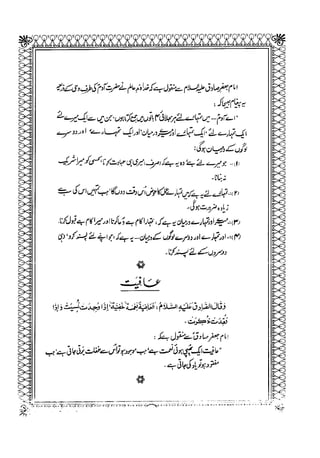 امام جعفر صادق علیہ السلام سے منقول ہے کہ خداوند عالم نے حضرت آدم کی طرف وحی کے ذریعے
یہ پیغام بھیجا کہ:
"اے آدم - میں تمہارے لئے ہر بھلائی ۴ باتوں میں جمع کرتا ہوں، جن میں سے ایک میرے لئے
ایک تمہارے لئے، ایک تمہارے اور میرے درمیان اور ایک تمہارے اور دوسرے
لوگوں کے درمیان ہوگی:
(۱)- جو میرے لئے ہے وہ یہ ہے کہ صرف میری ہی عبادت کرو، کسی کو میرا شریک
نہ بنانا۔
(۲)- تمہارے لئے یہ ہے کہ میں تمہارے عمل کا عوض اس وقت دوں گا جب تمہیں اس کی سب سے
زیادہ ضرورت ہوگی۔
(۳)- میرے اور تمہارے درمیان یہ ہے کہ، تمہارا کام ہے دعا کرنا اور میرا کام ہے قبول کرنا۔
(۴)- اور تمہارے اور دوسرے لوگوں کے درمیان - یہ ہے کہ، جو اپنے لئے پسند کرو وہی
دوسروں کے لئے پسند کرنا۔
عافیت
وَقَالَ الصَّادِقُ عَلَيْهِ السَّلَامُ: اَلْعَافِيَةُ نِعْمَةٌ خَفِيَّةٌ اِذَا وُجِدَتْ نُسِيَتْ وَاِذَا
فُقِدَتْ ذُكِرَتْ۔
امام جعفر صادق سے منقول ہے کہ:
"عافیت ایک چھپی ہوئی نعمت ہے جب موجود ہو تو اس سے غفلت برتی جاتی ہے، جب
مفقود ہو تو یاد کی جاتی ہے۔